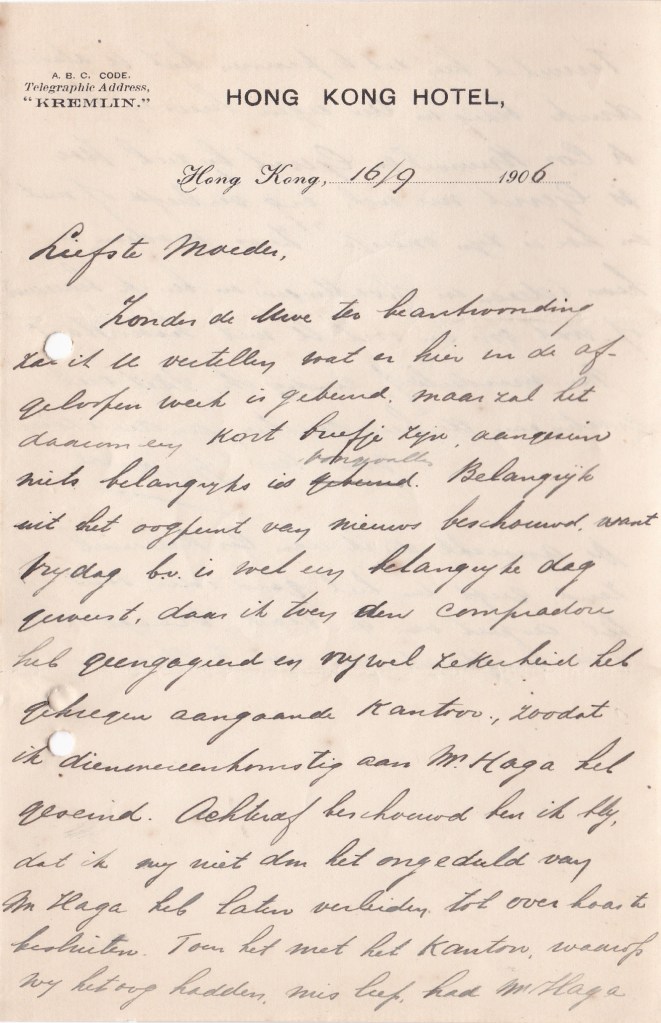 A. B. C. CODE.
Telegraphic Address,
"KREMLIN."
HONG KONG HOTEL,
Hong Kong, 16/9 1906
Liefste Moeder,
Zonder de Uwe ter beantwoording
zal ik U vertellen wat er hier in de af-
geloopen week is gebeurd, maar zal het
daarom een kort briefje zijn, aangezien
voorgevallen
niets belangrijks is gebeurd. Belangrijk
uit het oogpunt van nieuws beschouwd, want
Vrydag b.v. is wel een belangryke dag
geweest, daar ik toen den compradore
heb geengageerd en vrywel zekerheid heb
gekregen aangaande Kantoor, zoodat
ik dienovereenkomstig aan Mr. Haga heb
geseind. Achteraf beschouwd ben ik bly,
dat ik my niet door het ongeduld van
Mr Haga heb laten verleiden tot over haaste
besluiten. Toen het met het Kantoor, waarop
wy het oog hadden, mis liep, had Mr Haga